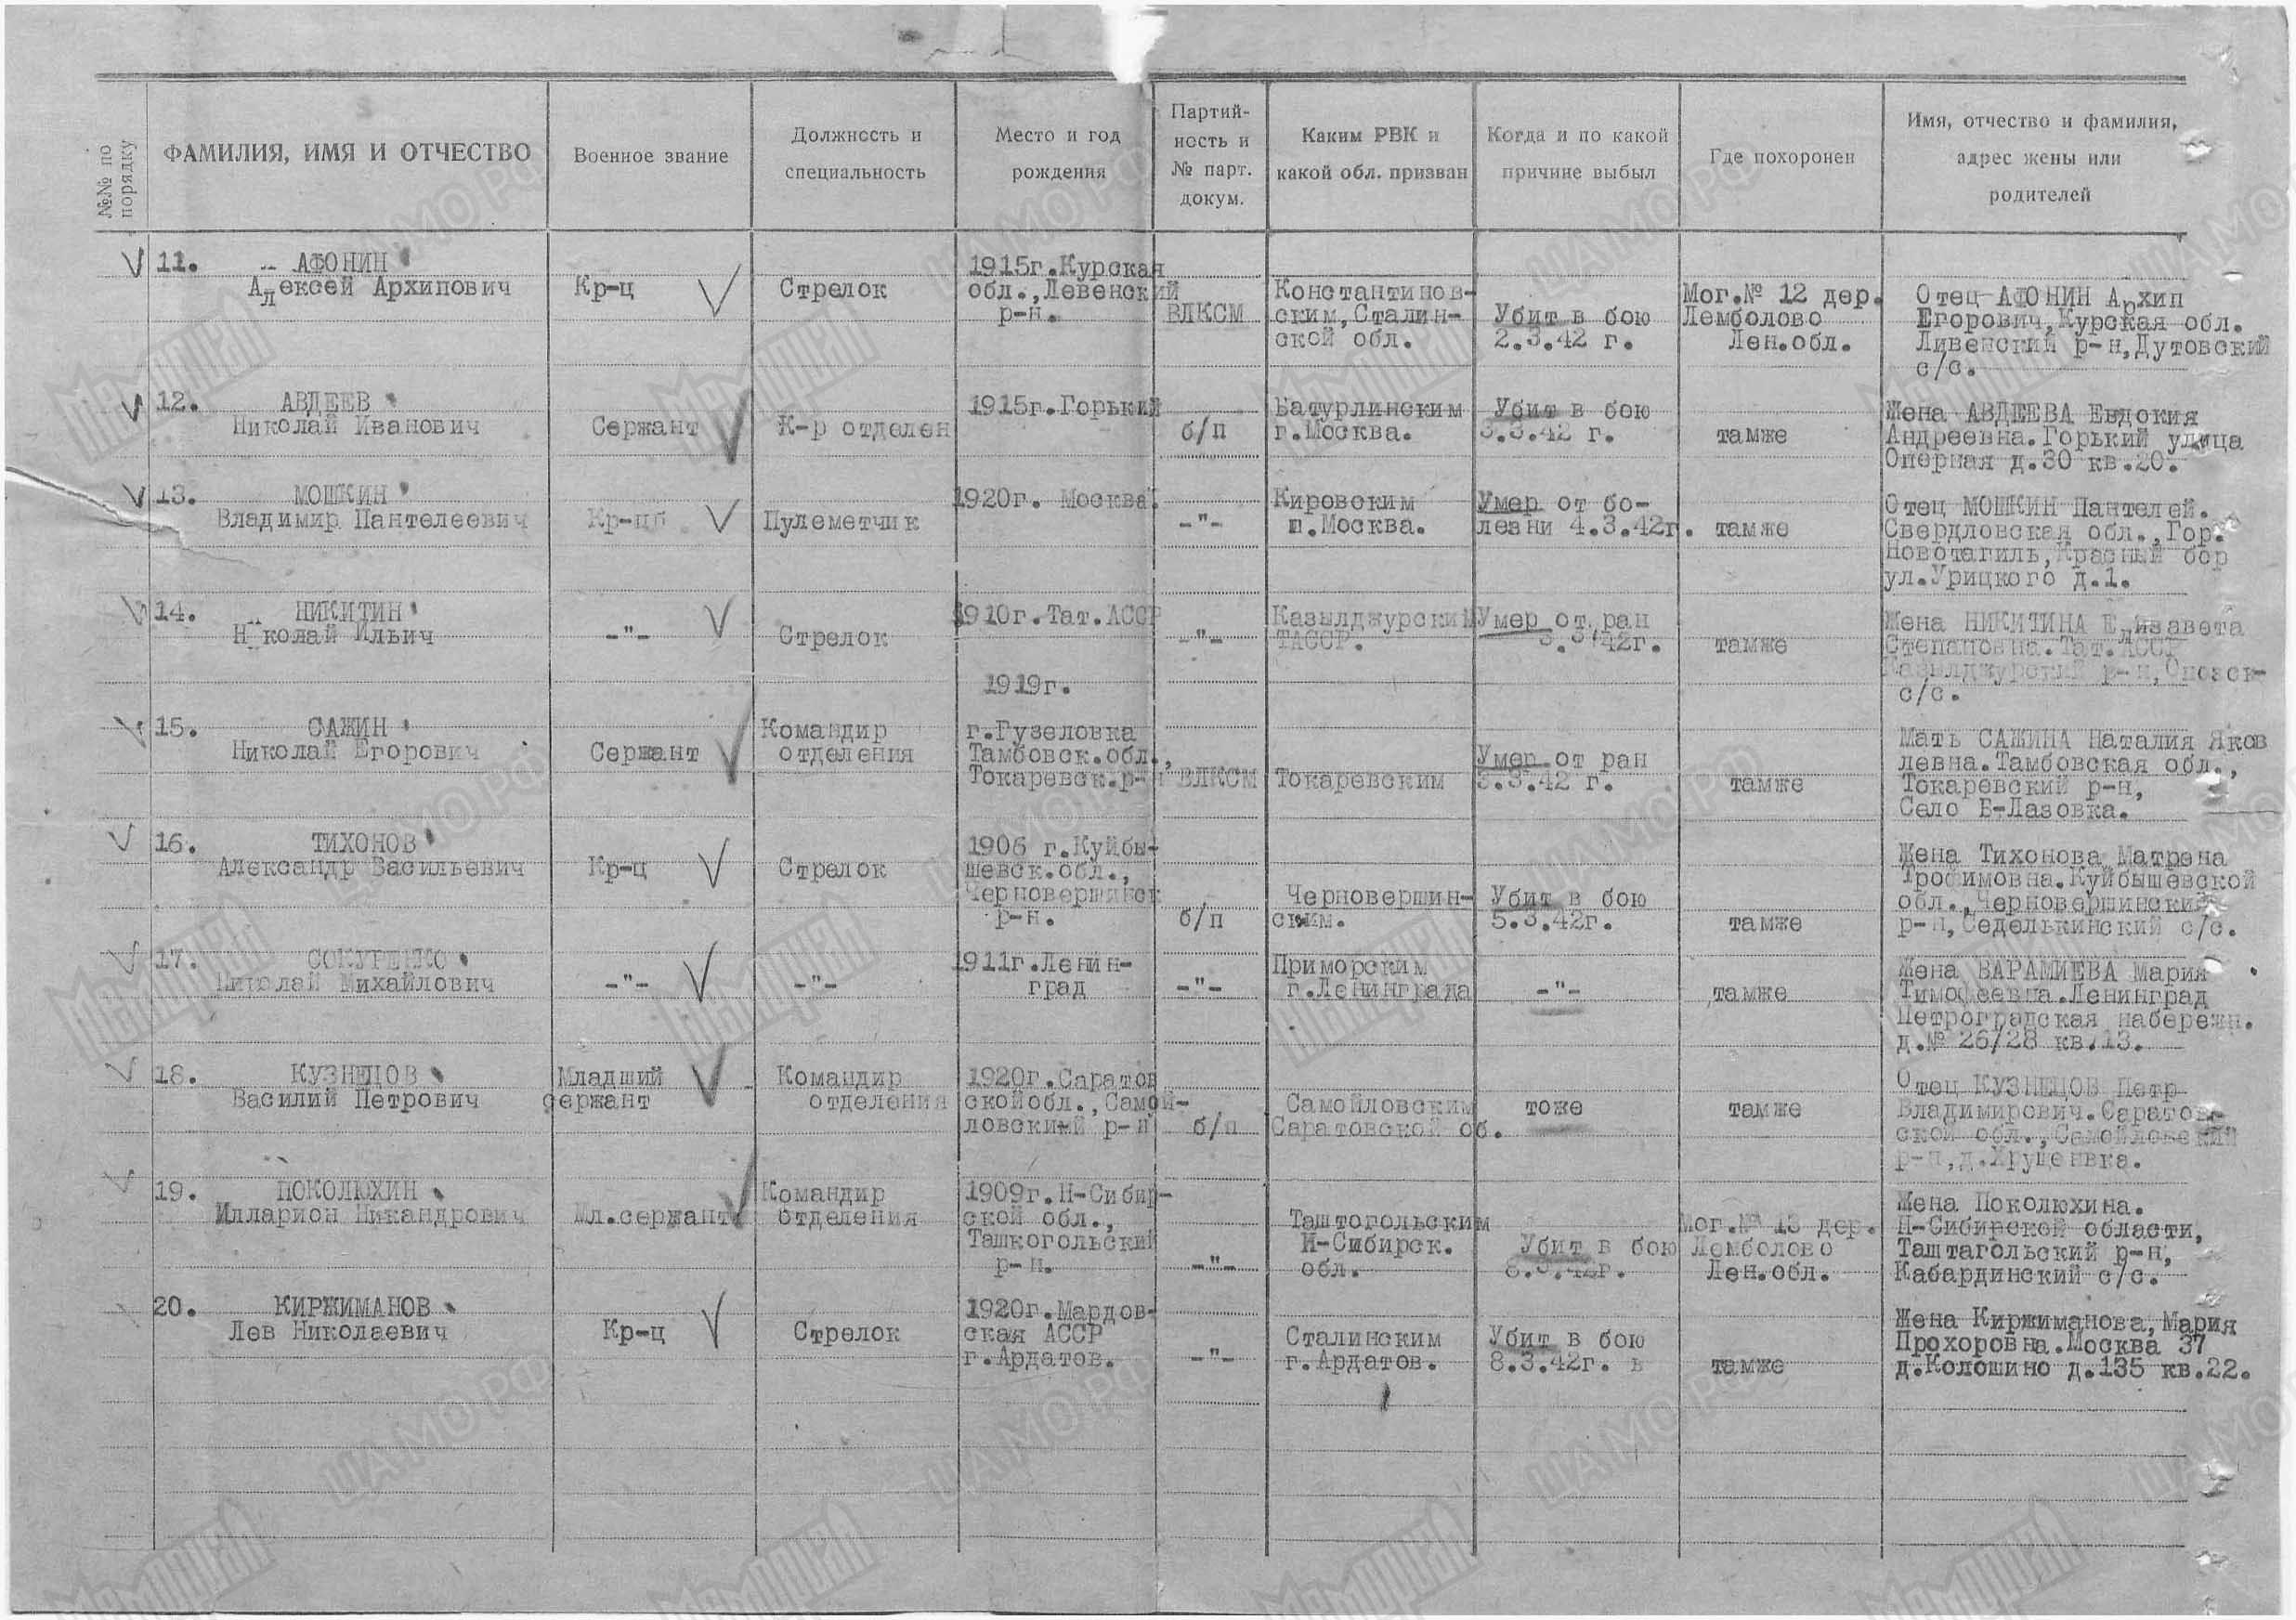 №№ по порядку
ФАМИЛИЯ, ИМЯ И ОТЧЕСТВО
Военное звание
Должность и
специальность
Место и год
рождения
Партий-
ность и
№ парт.
докум.
Каким РВК и
какой обл. призван
Когда и по какой
причине выбыл
Где похоронен
Имя, отчество и фамилия,
адрес жены или
родителей
11.
АФОНИН
Алексей Архипович
Кр-ц
Стрелок
1915г.Курская
обл.,Левенский
р-н.
ВЛКСМ
Константинов-
ским,Сталин-
ской обл.
Убит в бою
2.3.42 г.
Мог.№ 12 дер.
Лемболово
Лен.обл.
Отец АФОНИН Архип
Егорович,Курская обл.
Ливенский р-н,Дутовский
с/с.
12.
АВДЕЕВ
Николай Иванович
Сержант
К-р отделен
1915г.Горький
б/п
Батурлинским
г.Москва.
Убит в бою
3.3.42 г.
тамже
Жена АВДЕЕВА Евдокия
Андреевна.Горький улица
Оперная д.30 кв.20.
13.
МОШКИН
Владимир Пантелеевич
Пулеметчик
1920г. Москва.
-"-
Кировским
Москва.
Умер от бо-
лезни 4.3.42г.
тамже
Отец МОШКИН Пантелей.
Свердловская обл.,Гор.
Новотагиль,Красный бор
ул.Урицкого д.1.
14.
НИКИТИН
Николай Ильич
-"-
Стрелок
1910г.Тат.АССР
-"-
Казылджурский
ТАССР.
Умер от ран
3.3.42г.
тамже
Жена НИКИТИНА Елизавета
Степановна.Тат.АССР
Казылджурский р-н,
с/с.
15.
САЖИН
Николай Егорович
Сержант
Командир
отделения
1919г.
г.Гузеловка
Тамбовск.обл.,
Токаревск.р-н
ВЛКСМ
Токаревским
Умер от ран
3.3.42 г.
тамже
Мать САЖИНА Наталия Яков
левна.Тамбовская обл.,
Токаревский р-н,
Село Б-Лазовка.
16.
ТИХОНОВ
Александр Васильевич
Кр-ц
Стрелок
1906 г.Куйбы-
шевск.обл.,
Черновершинск
р-н.
б/п
Черновершин-
ским.
Убит в бою
5.3.42г.
тамже
Жена Тихонова Матрена
Трофимовна.Куйбышевской
обл.,Черновершинский
р-н,Седелькинский с/с.
17.
СОКУРЕНКО
Николай Михайлович
-"-
-"-
1911г.Ленин-
град
-"-
Приморским
г.Ленинграда
-"-
тамже
Жена ВАРАМИЕВА Мария
Тимофеевна.Ленинград
Петроградская набережн.
д.№ 26/28 кв.13.
18.
КУЗНЕЦОВ
Василий Петрович
Младший
сержант
Командир
отделения
1920г.Саратов
ской обл.,Самой-
ловский р-н
б/п
Самойловским
Саратовской об.
тоже
тамже
Отец КУЗНЕЦОВ Петр
Владимирович.Саратов-
ской обл.,Самойловский
р-н,д.Хрущенвка.
19.
ПОКОЛЮХИН
Илларион Никандрович
Мл.сержант
Командир
отделения
1909г.Н-Сибир-
ской обл.,
Ташкогольский
р-н.
-"-
Таштогольским
Н-Сибирск.
обл.
Убит в бою
8.3.42г.
Мог.№ 13 дер.
Лемболово
Лен.обл.
Жена Поколюхина.
Н-Сибирской области,
Таштагольский р-н,
Кабардинский с/с.
20.
КИРЖИМАНОВ
Лев Николаевич
Кр-ц
Стрелок
1920г.Мардов-
ская АССР
г.Ардатов.
-"-
Сталинским
г.Ардатов.
Убит в бою
8.3.42г. в
тамже
Жена Киржиманова,Мария
Прохоровна.Москва 37
д.Колошино д.135 кв.22.